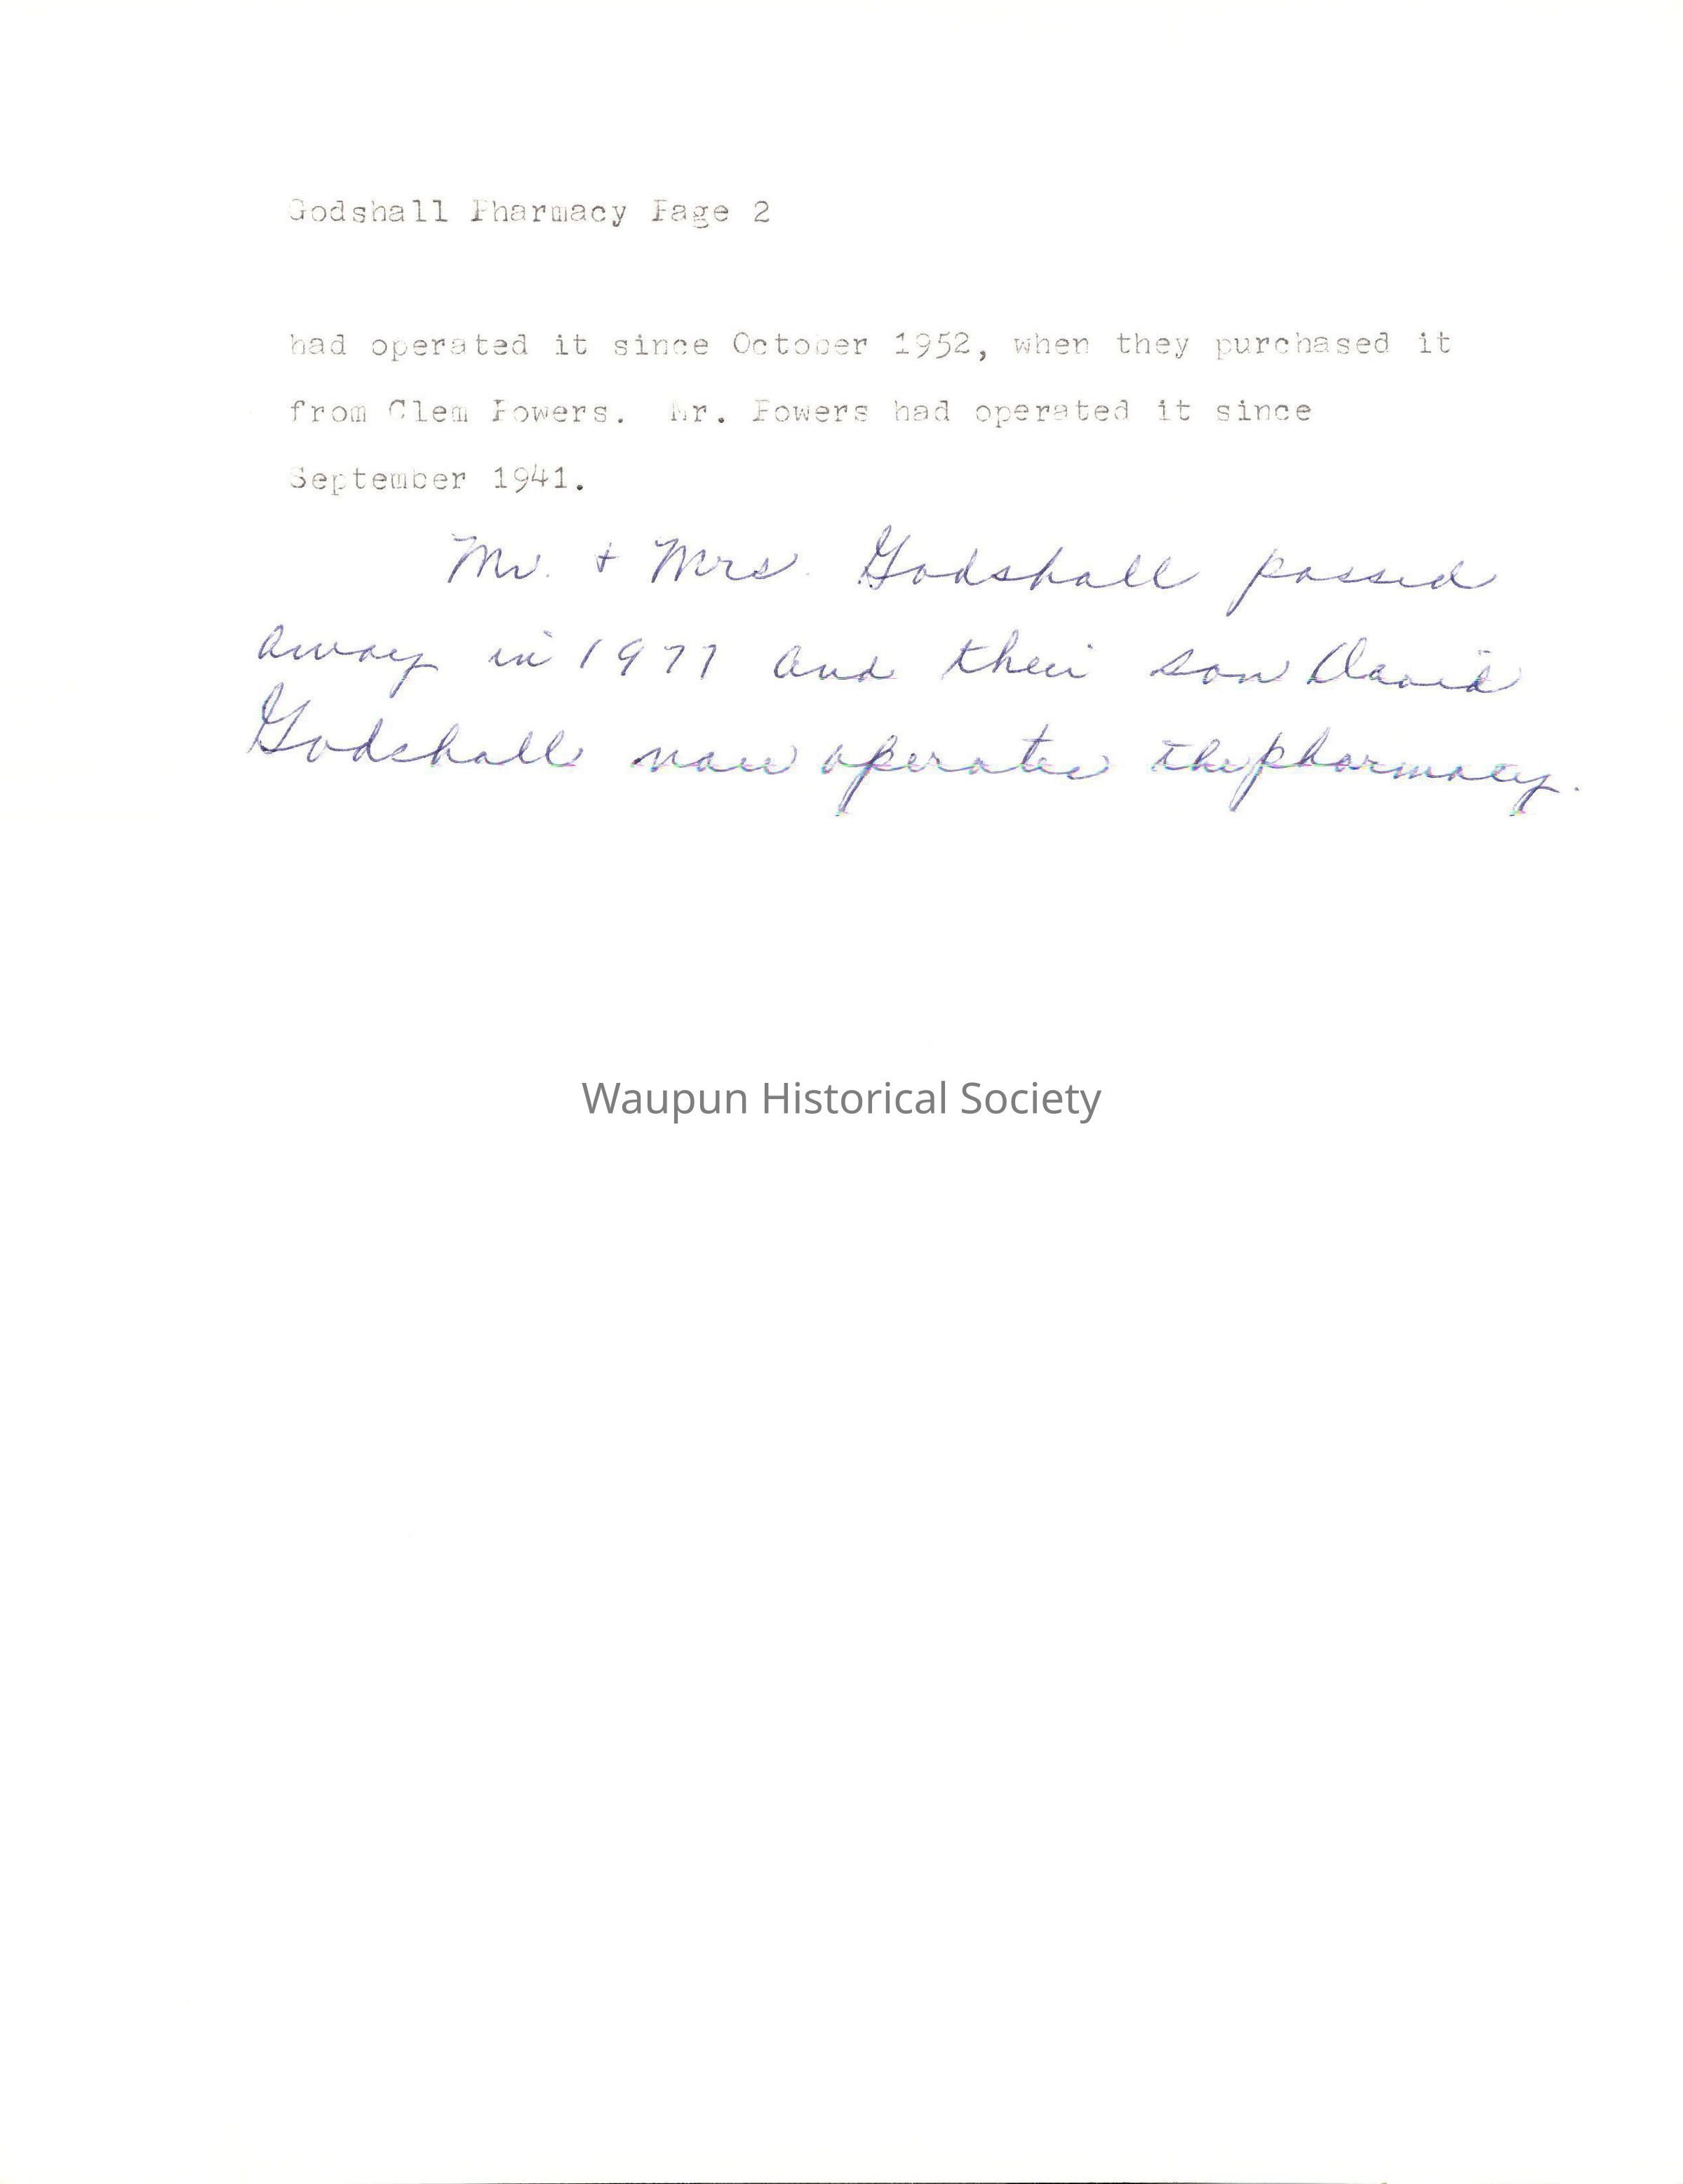 Godshall Pharmacy Page 2
had operated it since October 1952, when they purchased it
from Clem Powers. Mr. Powers had operated it since
September 1941.
Mr. + Mrs. Godshall passed
away in 1977 and their son David
Godshall now operates the pharmacy.
Waupun Historical Society